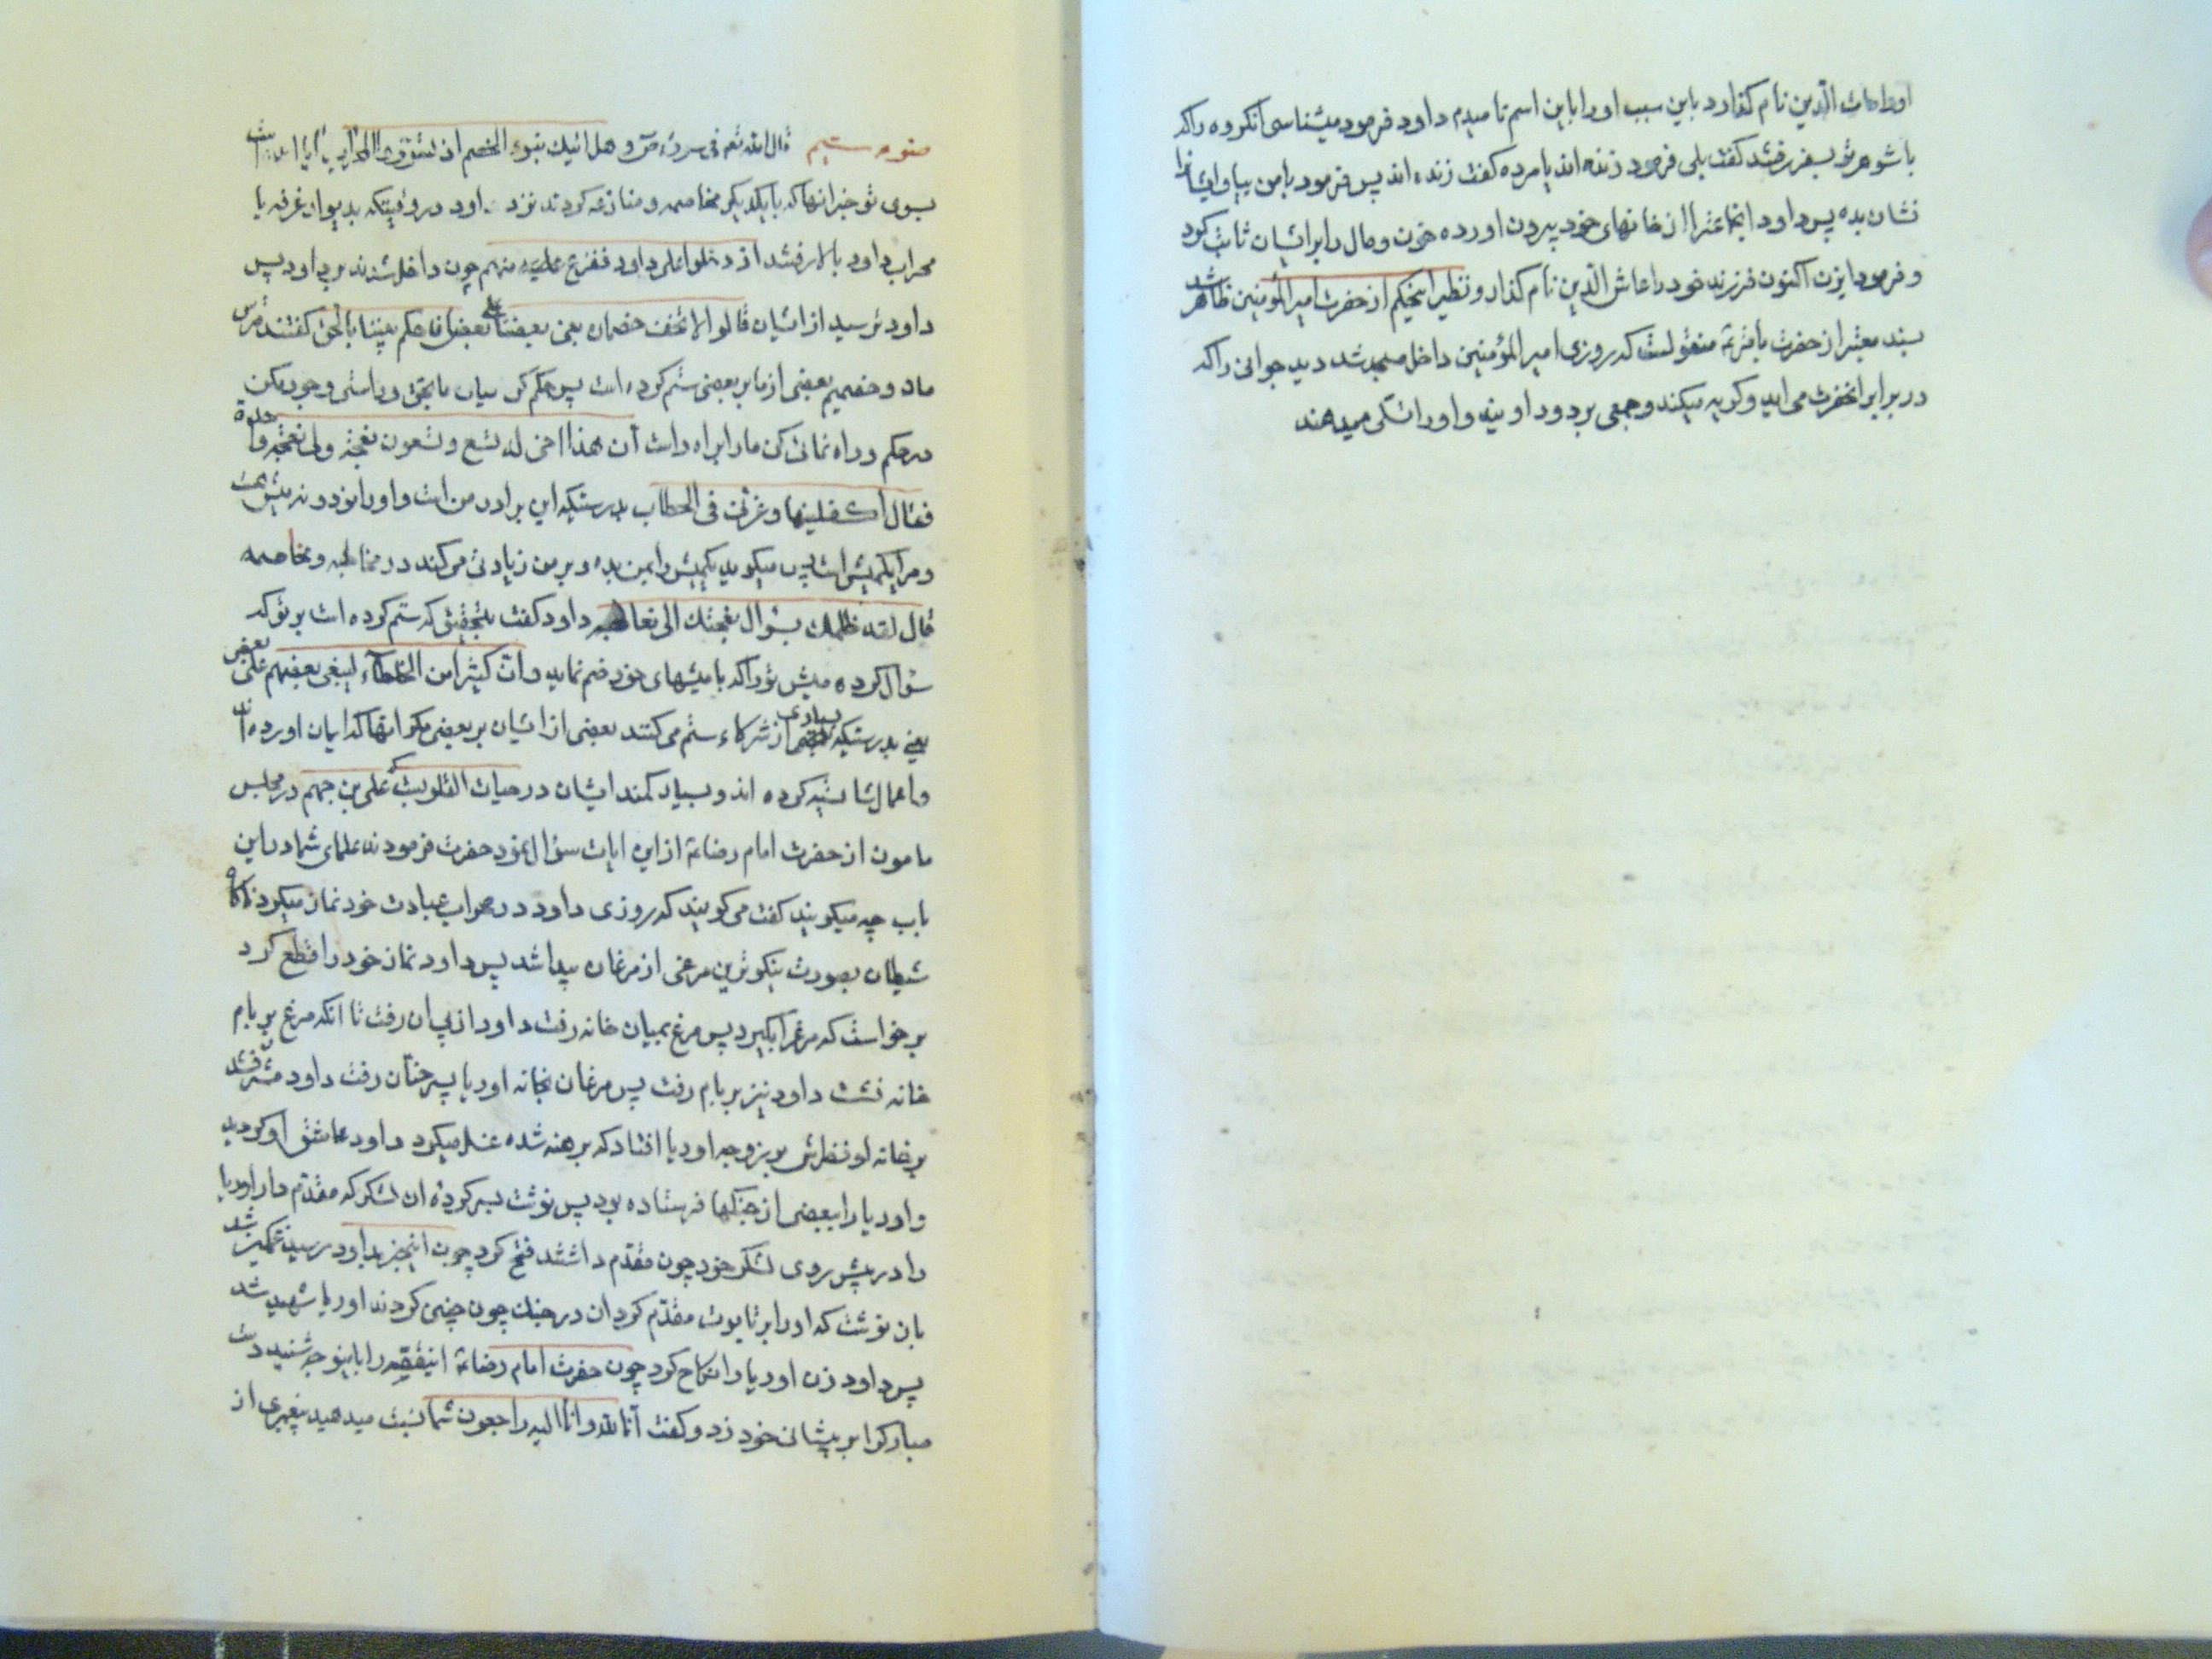 او را مات الدین نام گذارد باین سبب او را باین اسم نامیدم داود فرمود میشناسی انکروه را که
با شوهر تو بسفر رفتند کفت بلی فرمود زنده اند یا مرده کفت زنده اند پس فرمود با من بیا و ایشانرا
نشان بده پس داود انجماعترا از خانهای خود بیرون اورده خون و مال را بر ایشان ثابت کرد
و فرمود ایزن اکنون فرزند خود را عاش الدین نام کذار و نظیر اینحکم از حضرت امیر المؤمنین ظاهر شد
بسند معتبر از حضرت باقر ع منقولست که روزی امیر المؤمنین داخل مسجد شد دید جوانی را که
در برابر انحضرت می اید و کریه میکند و جمعی بر دور اویند و او را تسلی میدهند
قال الله تعم فی سورة ص و هل اتیك نبوء الخصم اذ تسوروا المحراب یا ایا امده است
بسوی تو خبر انها که با یکدیکر مخاصمه و منازعه کردند نزد داود در وقتیکه بدیوار غرفه یا
محراب داود بالا رفتند اذ دخلوا علی داود ففزع منهم چون داخل شدند بر داود پس
داود ترسید از ایشان قالوا لا تخف خصمان بغی بعضنا علی بعض فاحکم بیننا بالحق کفتند مترس
ماد و خصمیم بعضی از ما بر بعضی ستم کرده است پس حکم کن میان ما بحق و راستی و جور مکن
در حکم و راه نمائی کن ما را براه راست ان هذا اخی له تسع و تسعون نعجة ولی نعجة واحدة
فقال اکفلنیها و عزنی فی الخطاب بدرستیکه این برادر من است و او را نود و نه میش هست
و مرا یکمیش است پس میکوید یکمیش را بمن بده و بر من زیادتی می کند در مخاطبه و مخاصمه
قال لقد ظلمك بسؤال نعجتك الی نعاجه داود کفت بتحقیق که ستم کرده است بر تو که
سؤال کرده میش تو را که با میشهای خود ضم نماید و ان کثیرا من الخلطاء لیبغی بعضهم علی بعض
یعنی بدرستیکه بسیاری از شرکاء ستم می کنند بعضی از ایشان بر بعضی مکر انها که ایمان اورده اند
و اعمال شایسته کرده اند و بسیار کمند ایشان در حیات القلوبست که علی بن جهم در مجلس
مامون از حضرت امام رضا ع از این ایات سؤال نمود حضرت فرمودند علمای شما در این
باب چه میکویند کفت می کویند که روزی داود در محراب عبادت خود نماز میکرد ناکاه
شیطان بصورت نیکوترین مرغی از مرغان پیدا شد پس داود نماز خود را قطع کرد
برخواست که مرغ را بکیرد پس مرغ بمیان خانه رفت داود از پی ان رفت تا انکه مرغ بر بام
خانه نشست داود نیز بر بام رفت پس مرغان بخانه اوریا پسر حنان رفت داود مشرف شد
بر خانه او نظرش بر زوجه اوریا افتاد که برهنه شده غسل میکرد داود عاشق او کردید
و اوریا را ببعضی از جنکها فرستاده بود پس نوشت بسر کرده ان لشکر که مقدم دار اوریا
را در پیش روی لشکر خود چون مقدم داشتند فتح کرد چون اینخبر بداود رسید غمکین شد
بان نوشت که او را بر تابوت مقدم کردان در جنك چون چنین کردند اوریا شهید شد
پس داود زن اوریا را نکاح کرد چون حضرت امام رضا ع اینقصه را باینوجه شنید دست
مبارکرا بر پیشانی خود زد و کفت انا لله و انا الیه راجعون شما نسبت میدهید پیغمبری از